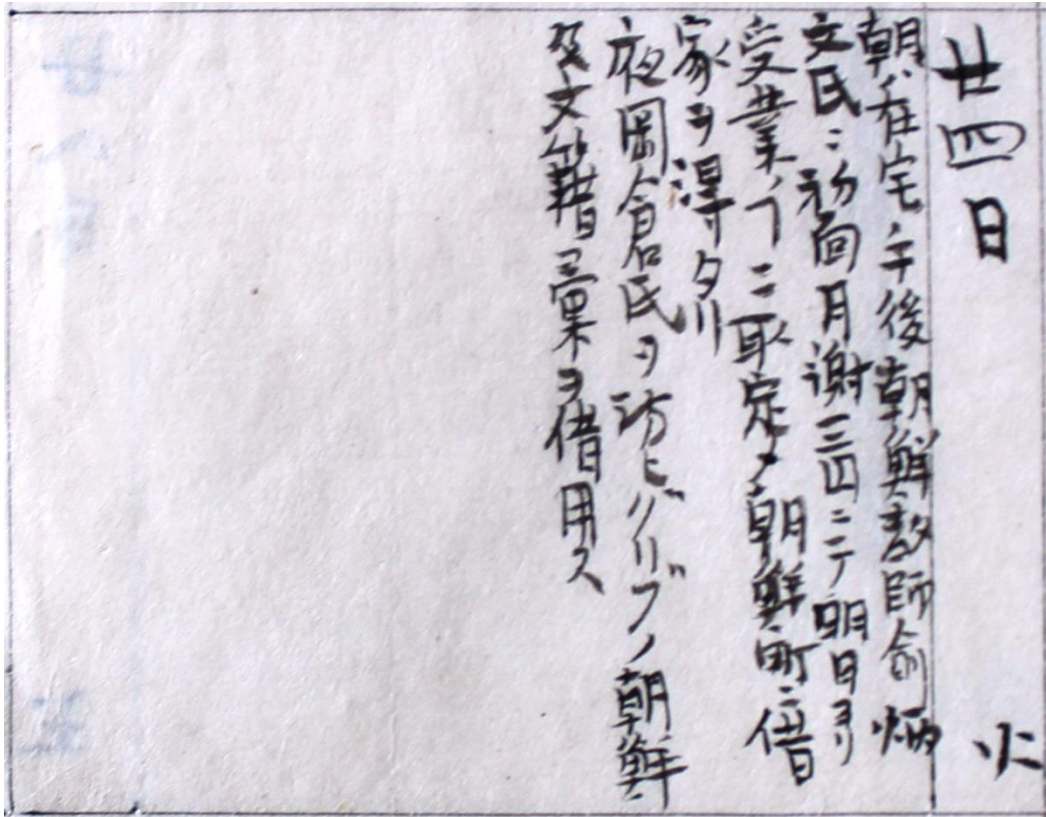 廿四日 火
朝ハ在宅、午後朝鮮教師俞炳
文氏ニ初回月謝三円ニテ明日ヨリ
受業ノヿニ取定メ朝鮮町ニ借
家ヲ得タリ
夜岡倉氏ヲ訪ヒグリブノ朝鮮
及文籍彙ヲ借用ス